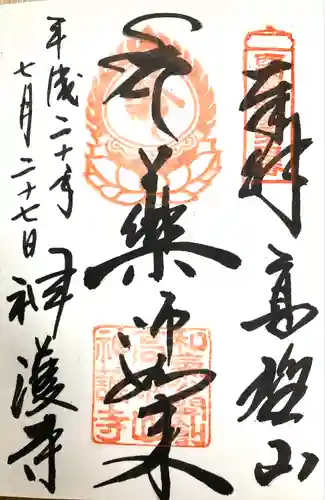 奉拝 高雄山
薬師如来
平成二十年
七月二十七日 神護寺